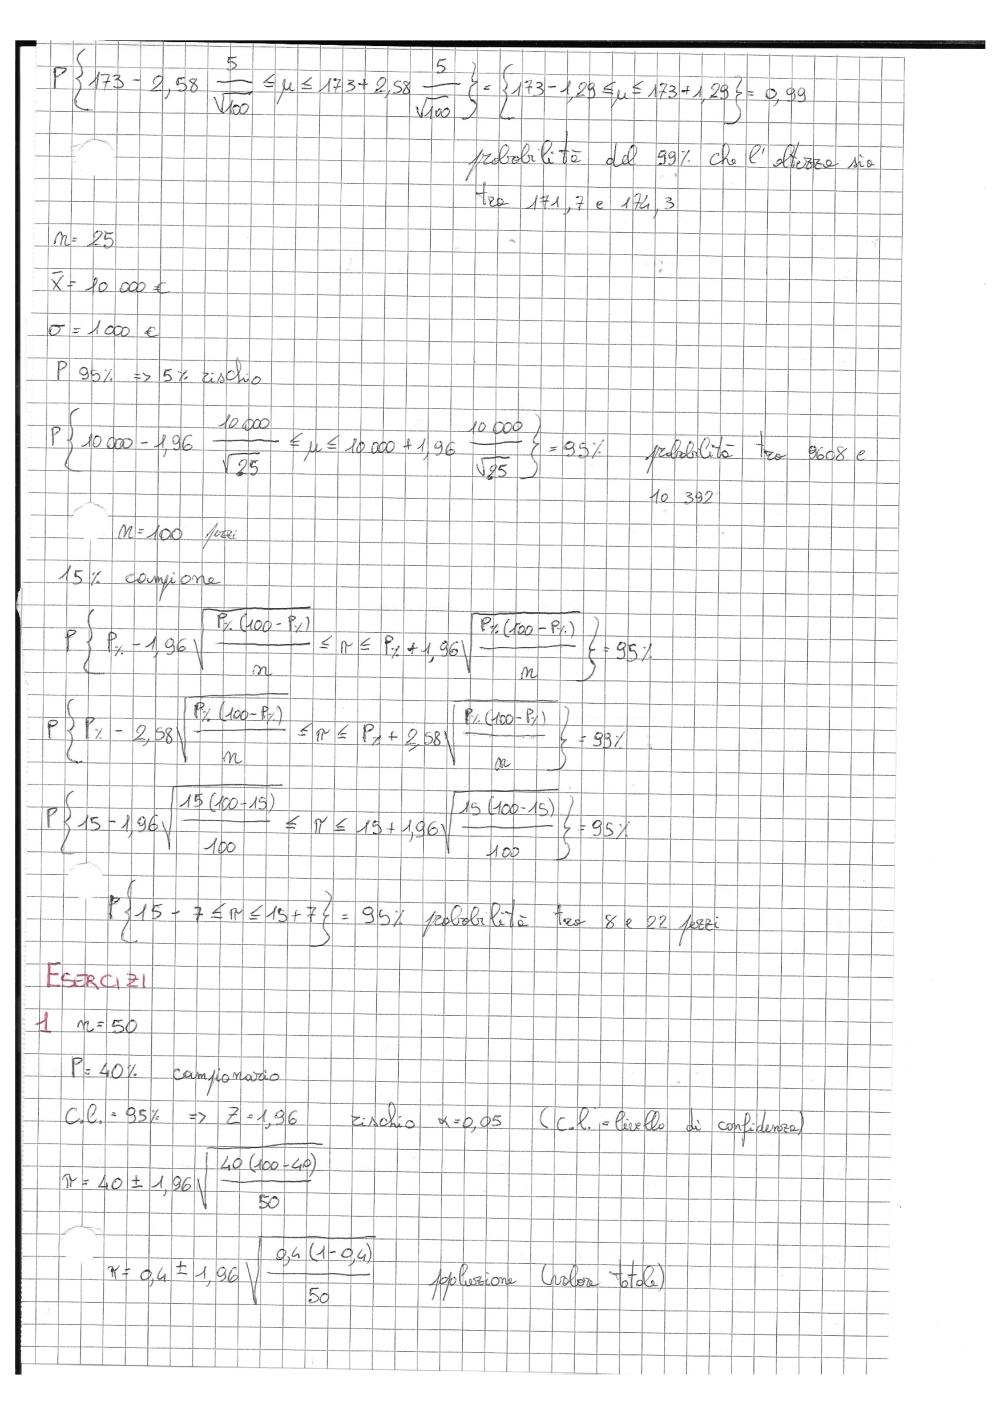 P{173 - 2,58 5/√100 ≤ μ ≤ 173 + 2,58 5/√100} = {173 - 1,29 ≤ μ ≤ 173 + 1,29} = 0,99
probabilità del 99% che l'altezza sia
tra 171,7 e 174,3
n = 25
x̄ = 10 000 €
σ = 1000 €
P 95% => 5% rischio
P{10 000 - 1,96 10 000/√25 ≤ μ ≤ 10 000 + 1,96 10 000/√25} = 95% probabilità tra 9608 e
10 392
n = 100 pezzi
15% campione
P{P% - 1,96 √(P%(100-P%)/n) ≤ π ≤ P% + 1,96 √(P%(100-P%)/n)} = 95%
P{P% - 2,58 √(P%(100-P%)/n) ≤ π ≤ P% + 2,58 √(P%(100-P%)/n)} = 99%
P{15 - 1,96 √(15(100-15)/100) ≤ π ≤ 15 + 1,96 √(15(100-15)/100)} = 95%
P{15 - 7 ≤ π ≤ 15 + 7} = 95% probabilità tra 8 e 22 pezzi
ESERCIZI
1 n = 50
P = 40% campionario
C.l. = 95% => Z = 1,96 rischio α = 0,05 (C.l. = livello di confidenza)
π = 40 ± 1,96 √(40(100-40)/50)
π = 0,4 ± 1,96 √(0,4(1-0,4)/50) popolazione (valore totale)